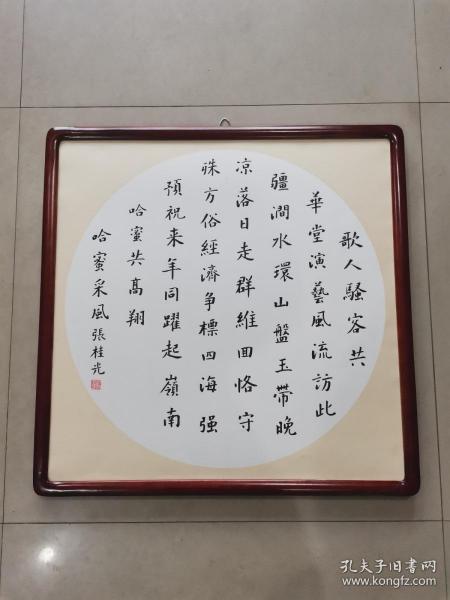 歌人騷客共
華堂演藝風流訪此
疆澗水環山盤玉帶晚
凉落日走群維回恪守
殊方俗經濟争標四海强
預祝来年同躍起嶺南
哈蜜共高翔
哈蜜采風張桂光
孔夫子旧书网
www.kongfz.com